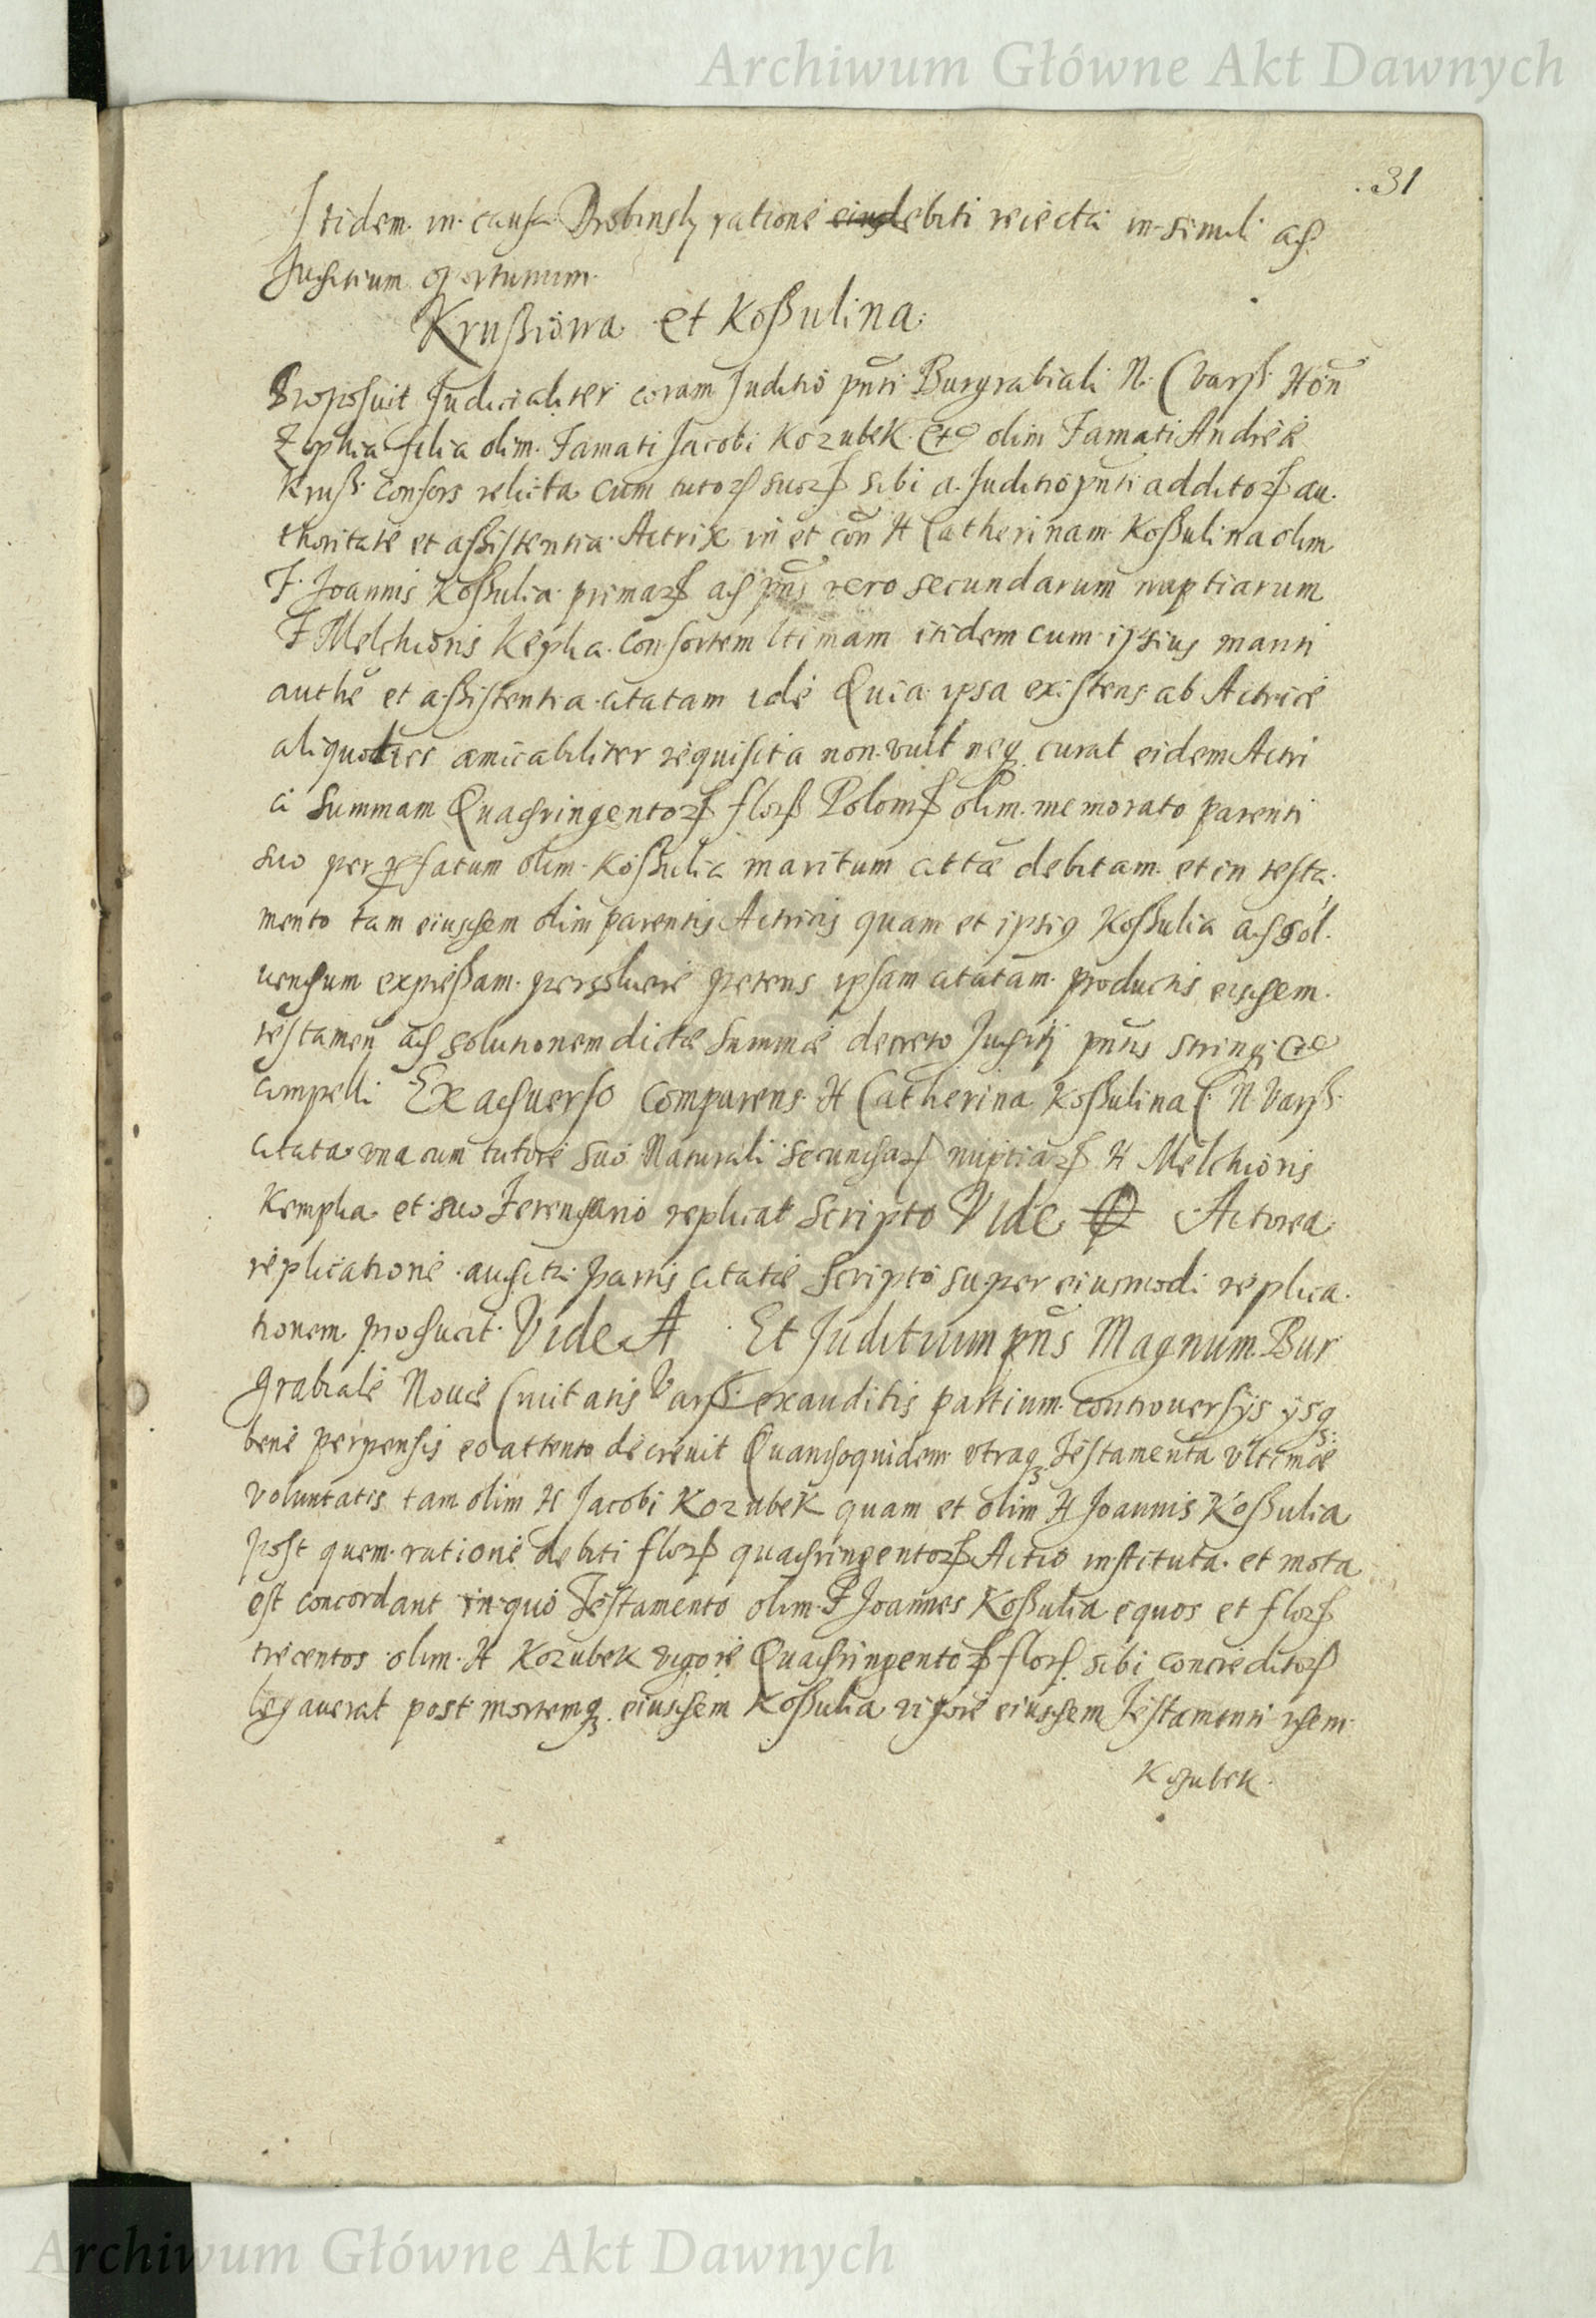 Archiwum Główne Akt Dawnych
31
Itidem in causa Drobinsky ratione debiti reiecta in simili ad
Juditium oportunum
Krusziowa et Koszulina
Proposuit Judicialiter coram Juditio pnti Burgrabiali N. C Varss. Hon
Zophia filia olim Famati Jacobi Kozubek etc olim Famati Andreæ
Krusz consors relicta cum tutoru suoru sibi a Juditio pnti additoru au
thoritate et assistentia Actrix in et con H Catherinam Koszulina olim
F. Joannis Koszulia primaru ad pns vero secundarum nuptiarum
F Melchioris Kepha consortem ltimam itidem cum ipsius mariti
authe et assistentia citatam ide Quia ipsa existens ab Actrice
aliquoties amicabiliter requisita non vult neq curat eidem Actri
ci summam Quadringentoru floru Poloniru olim memorato parenti
suo per præfatum olim Koszulia maritum cittæ debitam et in testa
mento tam eiusdem olim parentis Actricis quam et ipsius Koszulia ad sol
uendum expressam persoluere petens ipsam citatam productis eisdem
testamen ad solutionem dictæ summæ decreto Juditij pntis stringi etc
compelli Ex aduerso comparens H Catherina Koszulina C. N Varss
citata vna cum tutore suo Naturali secundaru nuptiaru H Melchioris
Kempha et suo Ferendario replicat scripto Vide Actorea
replicatione audita Partis citatæ scripto super eiusmodi replica
tionem producit Vide A Et Juditium pns Magnum Bur
grabiale Nouæ Ciuitatis Varss exauditis partium controuersys ysq
bene perpensis eo attento decreuit Quandoquidem vtraq Testamenta vltimæ
voluntatis tam olim H Jacobi Kozubek quam et olim H Joannis Koszulia
post quem ratione debiti floru quadringentoru Actio instituta et mota
est concordant in quo Testamento olim F Joannes Koszulia equos et floru
trecentos olim H Kozubek vigore Quadringentoru floru sibi concreditoru
legauerat post mortemq eiusdem Koszulia vigore eiusdem Testamenti idem
Kozubek
Archiwum Główne Akt Dawnych